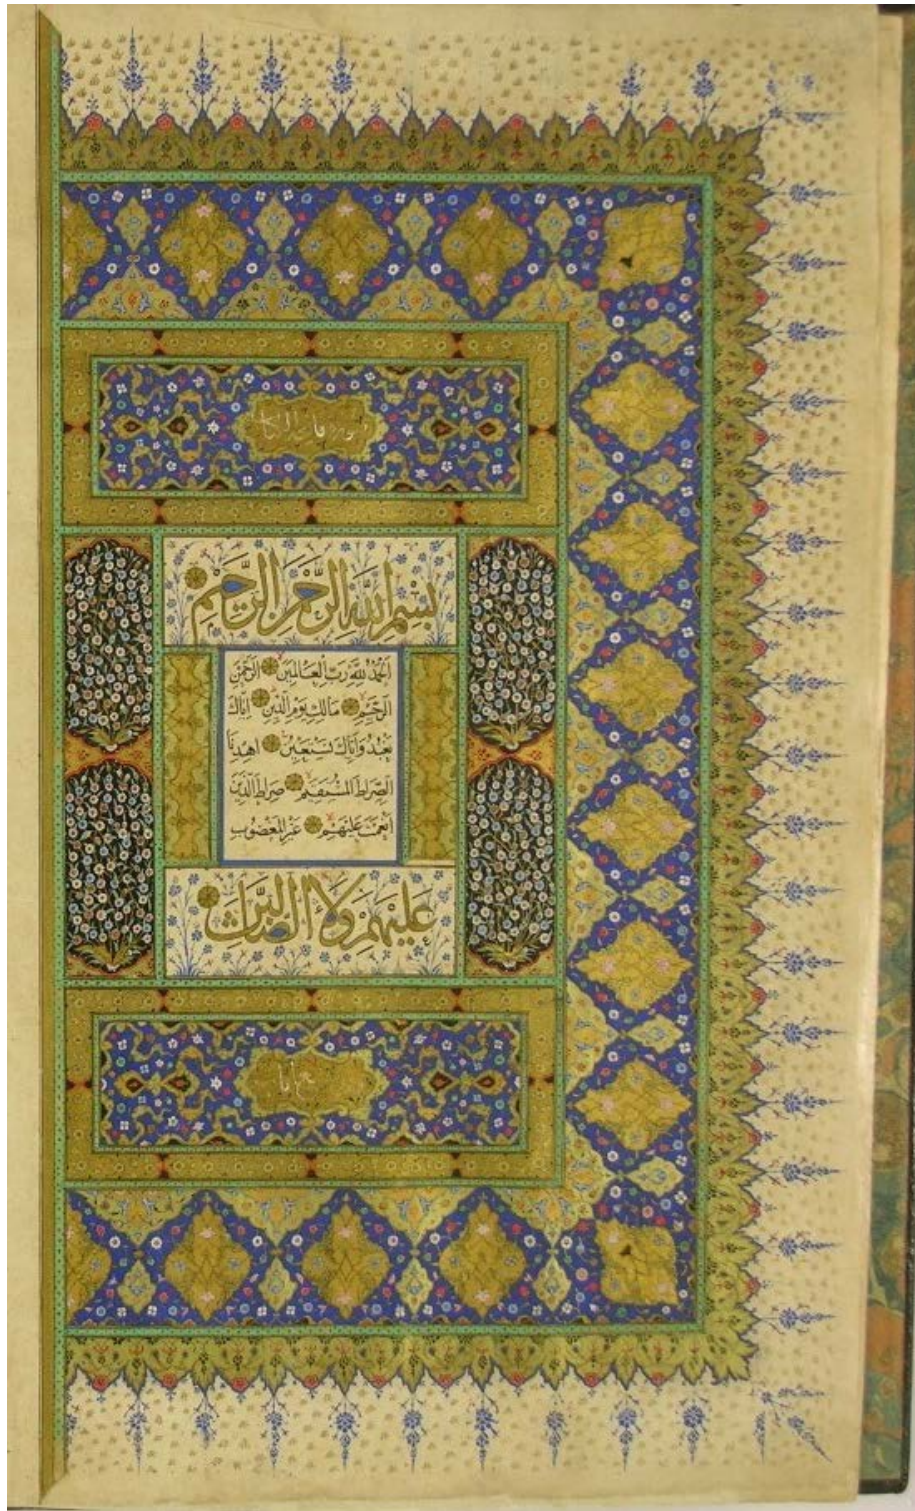 سورة فاتحة الكتاب
بِسْمِ اللَّهِ الرَّحْمَنِ الرَّحِيمِ
اَلْحَمْدُ لِلَّهِ رَبِّ الْعَالَمِينَ الرَّحْمَنِ
الرَّحِيمِ مَالِكِ يَوْمِ الدِّينِ اِيَّاكَ
نَعْبُدُ وَاِيَّاكَ نَسْتَعِينُ اِهْدِنَا
الصِّرَاطَ الْمُسْتَقِيمَ صِرَاطَ الَّذِينَ
اَنْعَمْتَ عَلَيْهِمْ غَيْرِ الْمَغْضُوبِ
عَلَيْهِمْ وَلَا الضَّالِّينَ